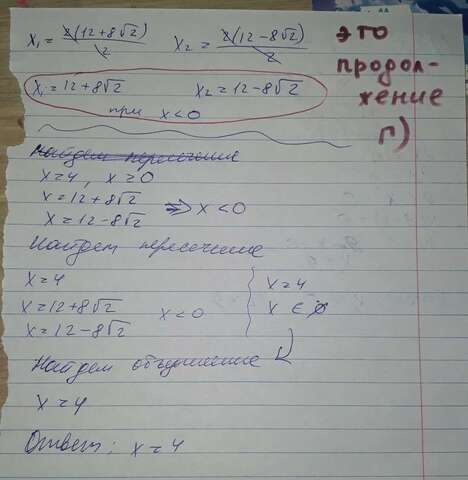 x₁ = 2(12+8√2)/2 x₂ = 2(12-8√2)/2
это
продол-
жение
г)
x₁ = 12+8√2 x₂ = 12-8√2
при x<0
Найдем пересечение
x=4, x≥0
x=12+8√2 => x<0
x=12-8√2
Найдем пересечение
x=4
x=12+8√2 x<0
x=12-8√2
x=4
x ∈ ∅
Найдем объединение
x=4
Ответ: x=4